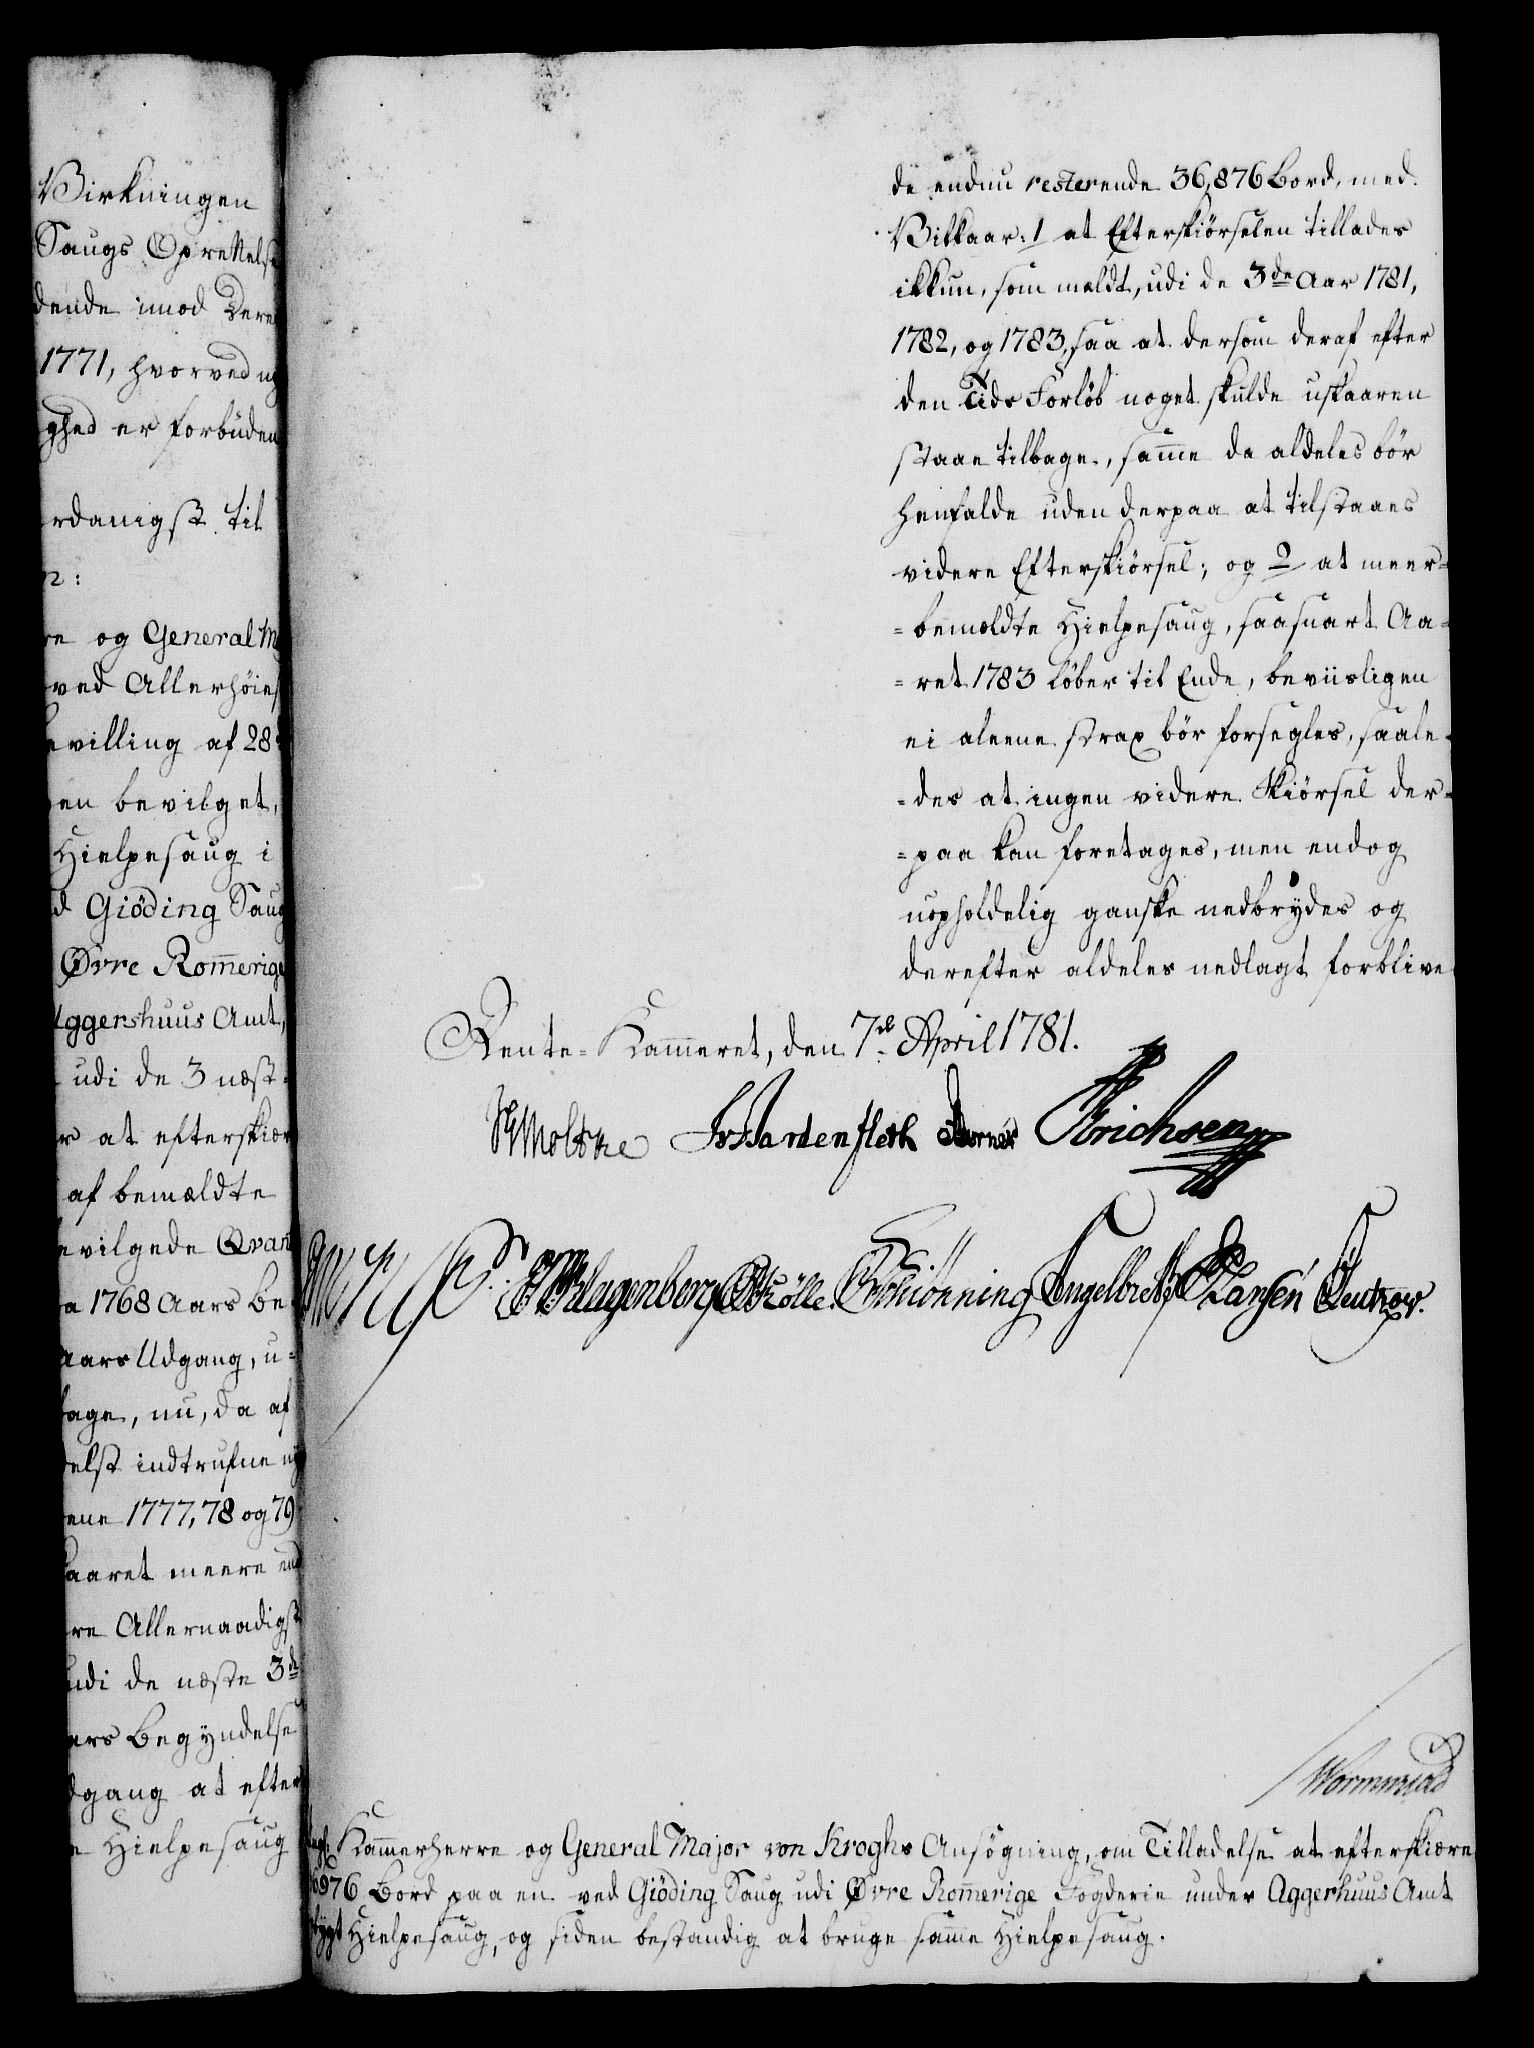 Virkningen
Saugs Oprettelse
dende imod Dere
1771, hvorved
ghed er forbuden
rdanigst til
n:
re og General M
ved Allerhöies
evilling af 28
en bevilget,
Hielpesaug i
d Giöding Saug
Øvre Rom̅erige
Aggershuus Amt,
udi de 3 næst-
r at efterskiær
af bemældte
evilgede Qvan
a 1768 Aars Be
Aars Udgang, u-
bage, nu, da af
delst indtrufne
ene 1777, 78 og 79
kaaret meere end
re Allernaadigst
udi de næste 3de
ers Begyndelse
dgang at efter
e Hielpesaug
de endnu resterende 36,876 Bord, med
Vilkaar: 1 at Efterskiörselen tillades
ikkun, som meldt, udi de 3de Aar 1781,
1782, og 1783, saa at dersom deraf efter
den Tids Forlöb noget skulde uskaaren
staae tilbage, sam̅e da aldeles bör
henfalde uden derpaa at tilstaaes
videre Efterskiörsel; og 2 at meer-
=bemeldte Hielpesaug, saasnart Aa-
=ret 1783 löber til Ende, beviisligen
ei aleene strax bör forsegles, saale-
=des at ingen videre Skiörsel der-
=paa kan foretages, men endog
uopholdelig ganske nedbrydes og
derefter aldeles nedlagt forblive
Rente-Kam̅eret, den 7de April 1781.
Moltke JvHardenfleth Berner Erichsen
Klagenberg Kölle Schiönning Engelbret Hansen Leutzow.
Wormskiold
Kam̅erherre og General Major von Kroghs Ansögning, om Tilladelse at efterskiære
6976 Bord paa en ved Giöding Saug udi Øvre Rom̅erige Fögderie under Aggershuus Amt
bygt Hielpesaug, og siden bestandig at bruge sam̅e Hielpesaug.